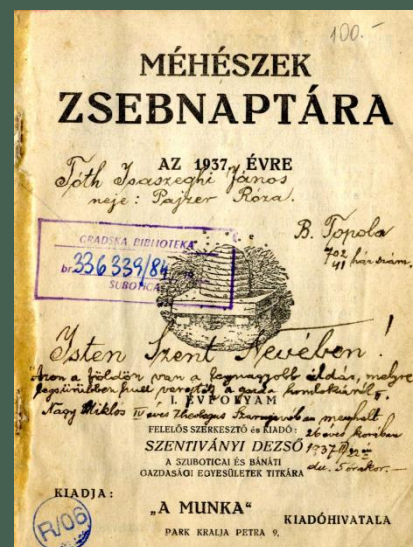 100.-
MÉHÉSZEK
ZSEBNAPTÁRA
AZ 1937. ÉVRE
Tóth Isaszeghi János
neje: Pajzer Róza.
B. Topola
702
41 házszám.
GRADSKA BIBLIOTEKA
br. 336339/84
SUBOTICA
Isten Szent Nevében!
azon a földön van a legnagyobb áldás, melyre
legsűrűbben hull veréjték a gazda homlokáról.
I. ÉVFOLYAM
Nagy Miklos IV éves Theologus Szarajevóban meghalt
FELELŐS SZERKESZTŐ és KIADÓ:
26 éves korában
SZENTIVÁNYI DEZSŐ
1937
A SZUBOTICAI ÉS BÁNÁTI
du. 5 órakor.-
GAZDASÁGI EGYESÜLETEK TITKÁRA
KIADJA:
„A MUNKA"
KIADÓHIVATALA
PARK KRALJA PETRA 9.
R/06